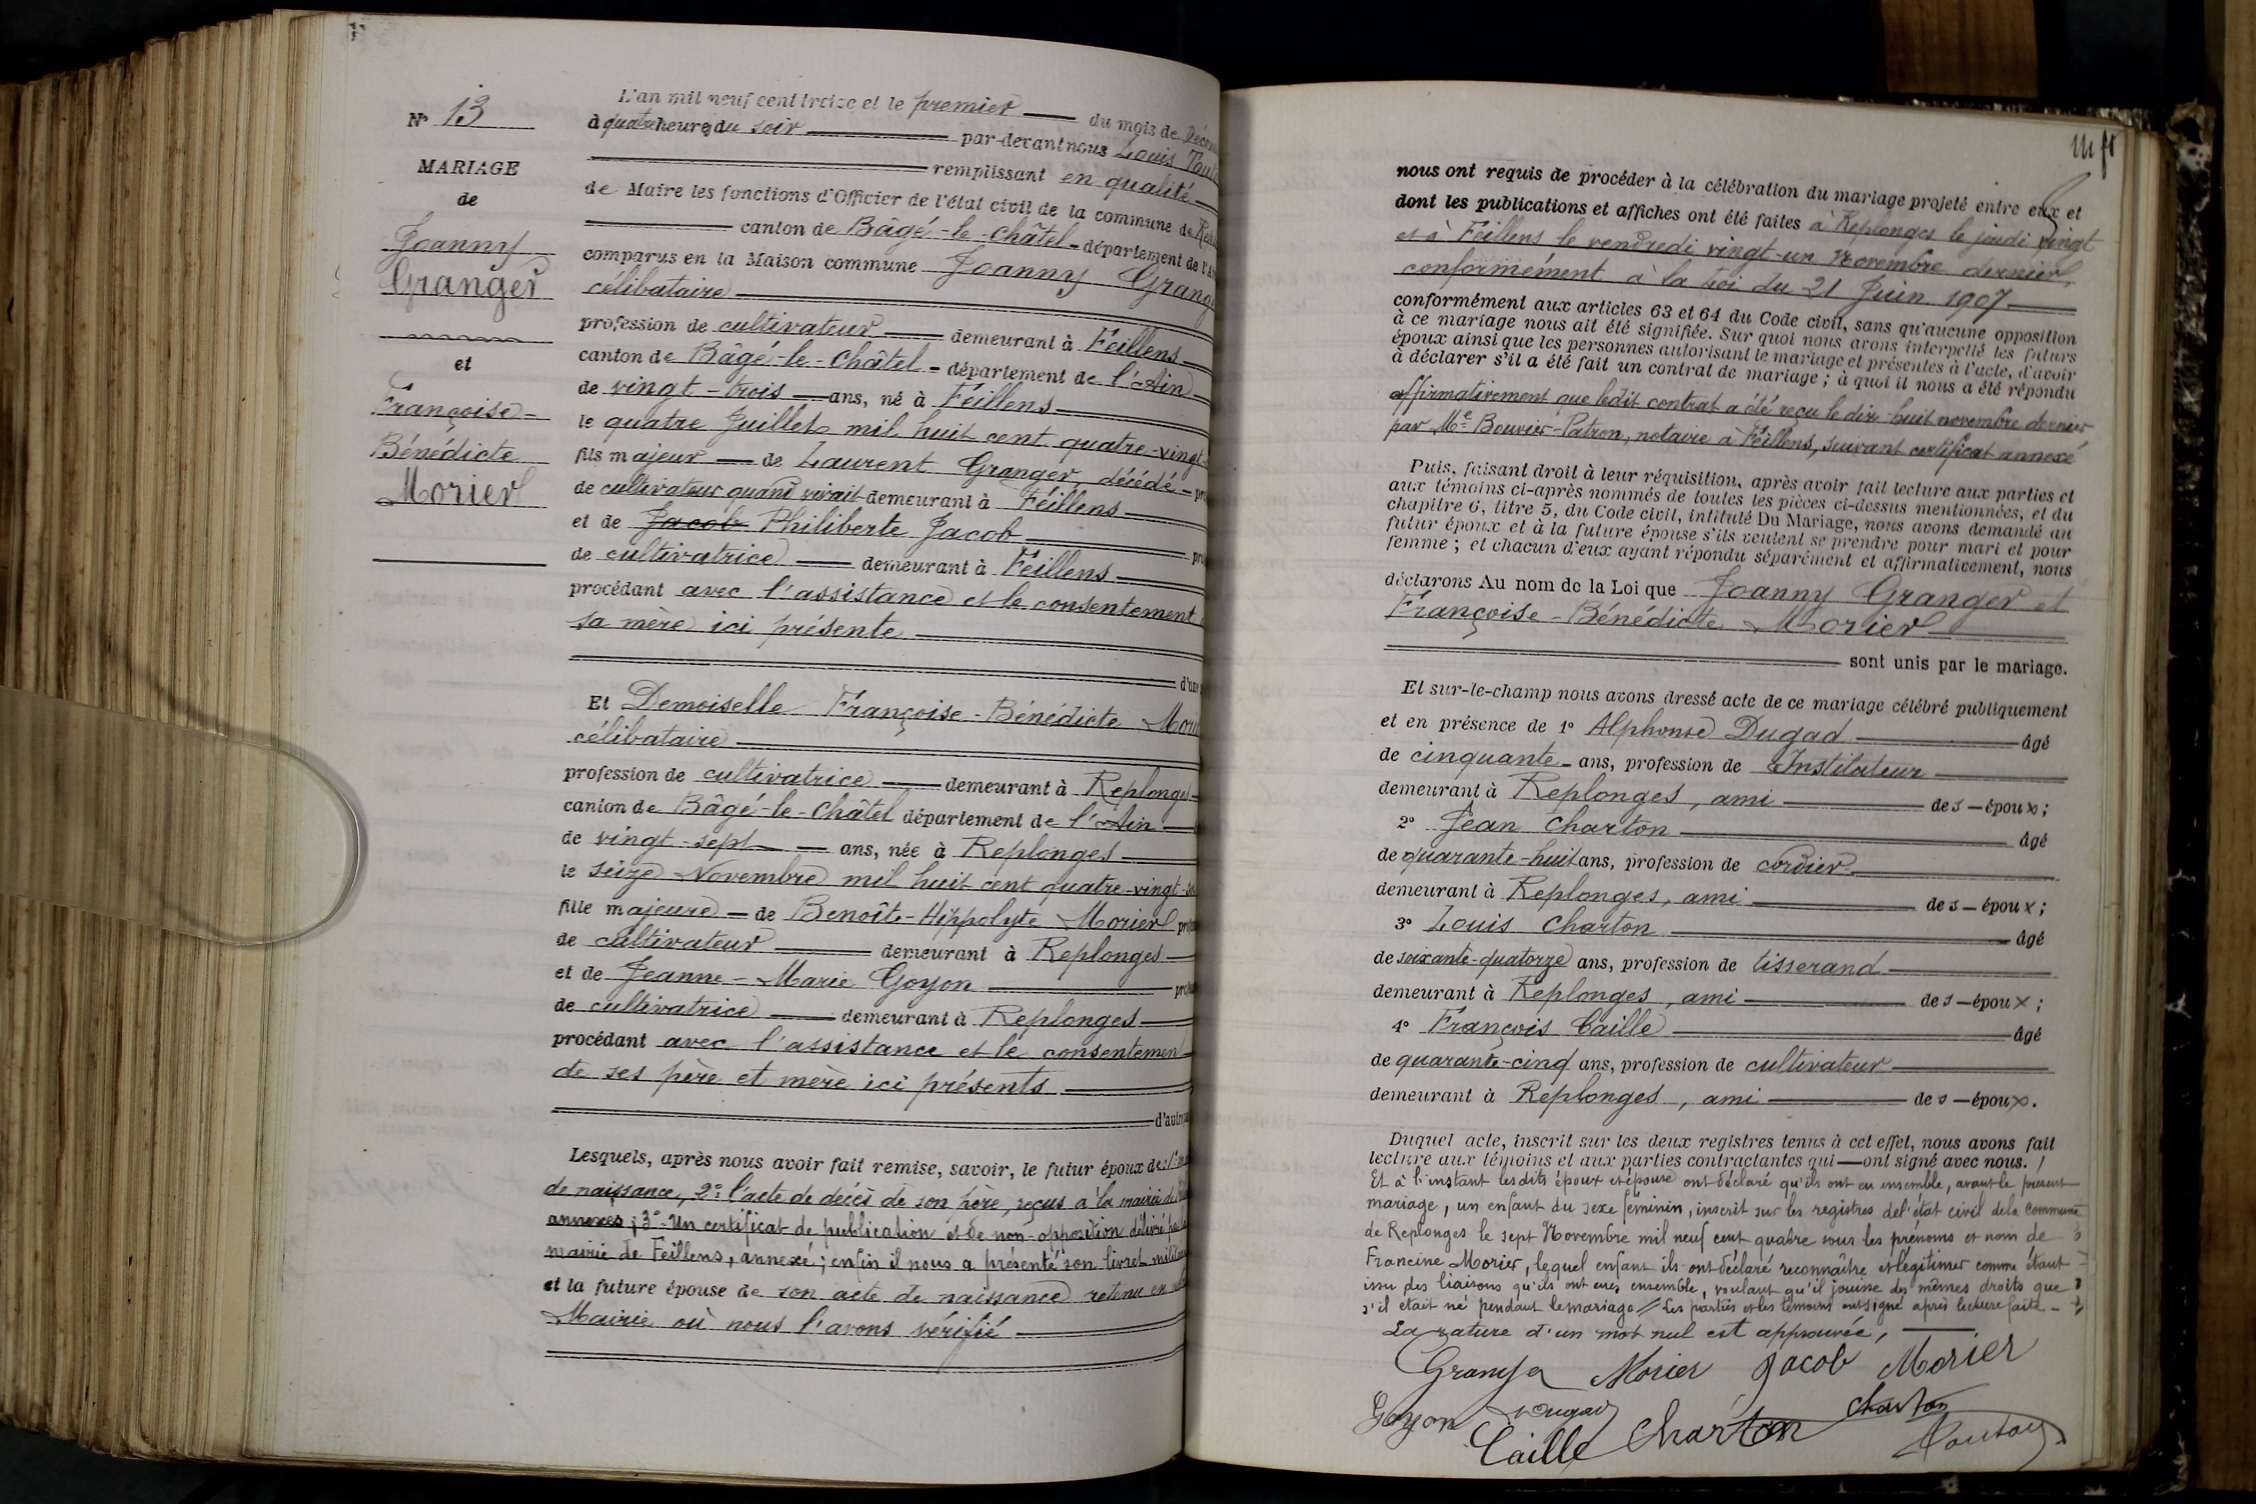 N° 13
MARIAGE
de
Joanny
Granger
et
Françoise-
Bénédicte
Morier
L'an mil neuf cent treize et le premier du mois de
à quatre heures du soir par-devant nous Louis
remplissant en qualité
de Maire les fonctions d'Officier de l'état civil de la commune de
canton de Bâgé-le-Châtel - département de
comparus en la Maison commune Joanny
célibataire
profession de cultivateur demeurant à Feillens
canton de Bâgé-le-Châtel - département de l'Ain
de vingt-trois ans, né à Feillens
le quatre Juillet mil huit cent quatre-vingt
fils majeur de Laurent Granger, décédé
de cultivateur quand vivait demeurant à Feillens
et de Jacob Philiberte Jacob
de cultivatrice demeurant à Feillens
procédant avec l'assistance et le consentement
sa mère ici présente
Et Demoiselle Françoise-Bénédicte
célibataire
profession de cultivatrice demeurant à Replonges
canton de Bâgé-le-Châtel département de l'Ain
de vingt-sept ans, née à Replonges
le seize Novembre mil huit cent quatre-vingt
fille majeure de Benoîte-Hippolyte Morier
de cultivateur demeurant à Replonges
et de Jeanne-Marie Goyon
de cultivatrice demeurant à Replonges
procédant avec l'assistance et le
de ses père et mère ici présents
Lesquels, après nous avoir fait remise, savoir, le futur époux de
de naissance, 2° l'acte de décès de son père, reçus à la mairie de
annexés; 3° - Un certificat de publication et de non-opposition délivré
mairie de Feillens, annexé; enfin il nous a présenté son livret
et la future épouse de son acte de naissance retenu en
Mairie où nous l'avons vérifié
nous ont requis de procéder à la célébration du mariage projeté entre eux et
dont les publications et affiches ont été faites à Replonges le jeudi vingt
et à Feillens le vendredi vingt-un novembre dernier,
conformément à la loi du 21 Juin 1907
conformément aux articles 63 et 64 du Code civil, sans qu'aucune opposition
à ce mariage nous ait été signifiée. Sur quoi nous avons interpellé les futurs
époux ainsi que les personnes autorisant le mariage et présentes à l'acte, d'avoir
à déclarer s'il a été fait un contrat de mariage; à quoi il nous a été répondu
affirmativement que ledit contrat a été reçu le dix-huit novembre dernier
par Me Bouvier-Patron, notaire à Feillens, suivant certificat annexé
Puis, faisant droit à leur réquisition, après avoir fait lecture aux parties et
aux témoins ci-après nommés de toutes les pièces ci-dessus mentionnées, et du
chapitre 6, titre 5, du Code civil, intitulé Du Mariage, nous avons demandé au
futur époux et à la future épouse s'ils veulent se prendre pour mari et pour
femme; et chacun d'eux ayant répondu séparément et affirmativement, nous
déclarons Au nom de la Loi que Joanny Granger et
Françoise-Bénédicte Morier
sont unis par le mariage.
Et sur-le-champ nous avons dressé acte de ce mariage célébré publiquement
et en présence de 1° Alphonse Dugad âgé
de cinquante - ans, profession de Instituteur
demeurant à Replonges, ami des époux;
2° Jean Charton âgé
de quarante-huit ans, profession de cordier
demeurant à Replonges, ami des époux;
3° Louis Charton âgé
de soixante-quatorze ans, profession de tisserand
demeurant à Replonges, ami des époux;
4° François Caille âgé
de quarante-cinq ans, profession de cultivateur
demeurant à Replonges, ami des époux.
Duquel acte, inscrit sur les deux registres tenus à cet effet, nous avons fait
lecture aux témoins et aux parties contractantes qui ont signé avec nous. /
Et à l'instant lesdits époux et épouse ont déclaré qu'ils ont eu ensemble, avant le présent
mariage, un enfant du sexe féminin, inscrit sur les registres de l'état civil de la commune
de Replonges le sept Novembre mil neuf cent quatre sous les prénoms et nom de
Francine Morier, lequel enfant ils ont déclaré reconnaître et légitimer comme étant
issu des liaisons qu'ils ont eues ensemble, voulant qu'il jouisse des mêmes droits que
s'il était né pendant le mariage // Les parties et les témoins ont signé après lecture faite -
La rature d'un mot nul est approuvée,
Granger Morier Jacob Morier
Goyon Dugad Charton
Caille Charton